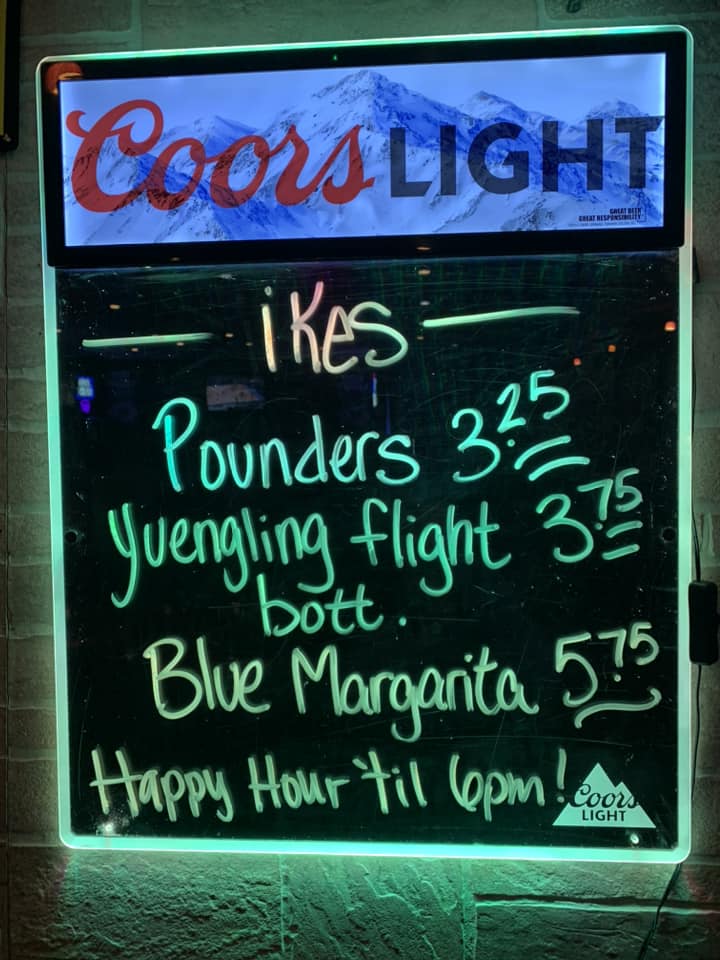 Coors LIGHT
GREAT BEER
GREAT RESPONSIBILITY
iKes
Pounders 3.25
Yuengling flight 3.75
bott.
Blue Margarita 5.75
Happy Hour 'til 6pm!
Coors
LIGHT